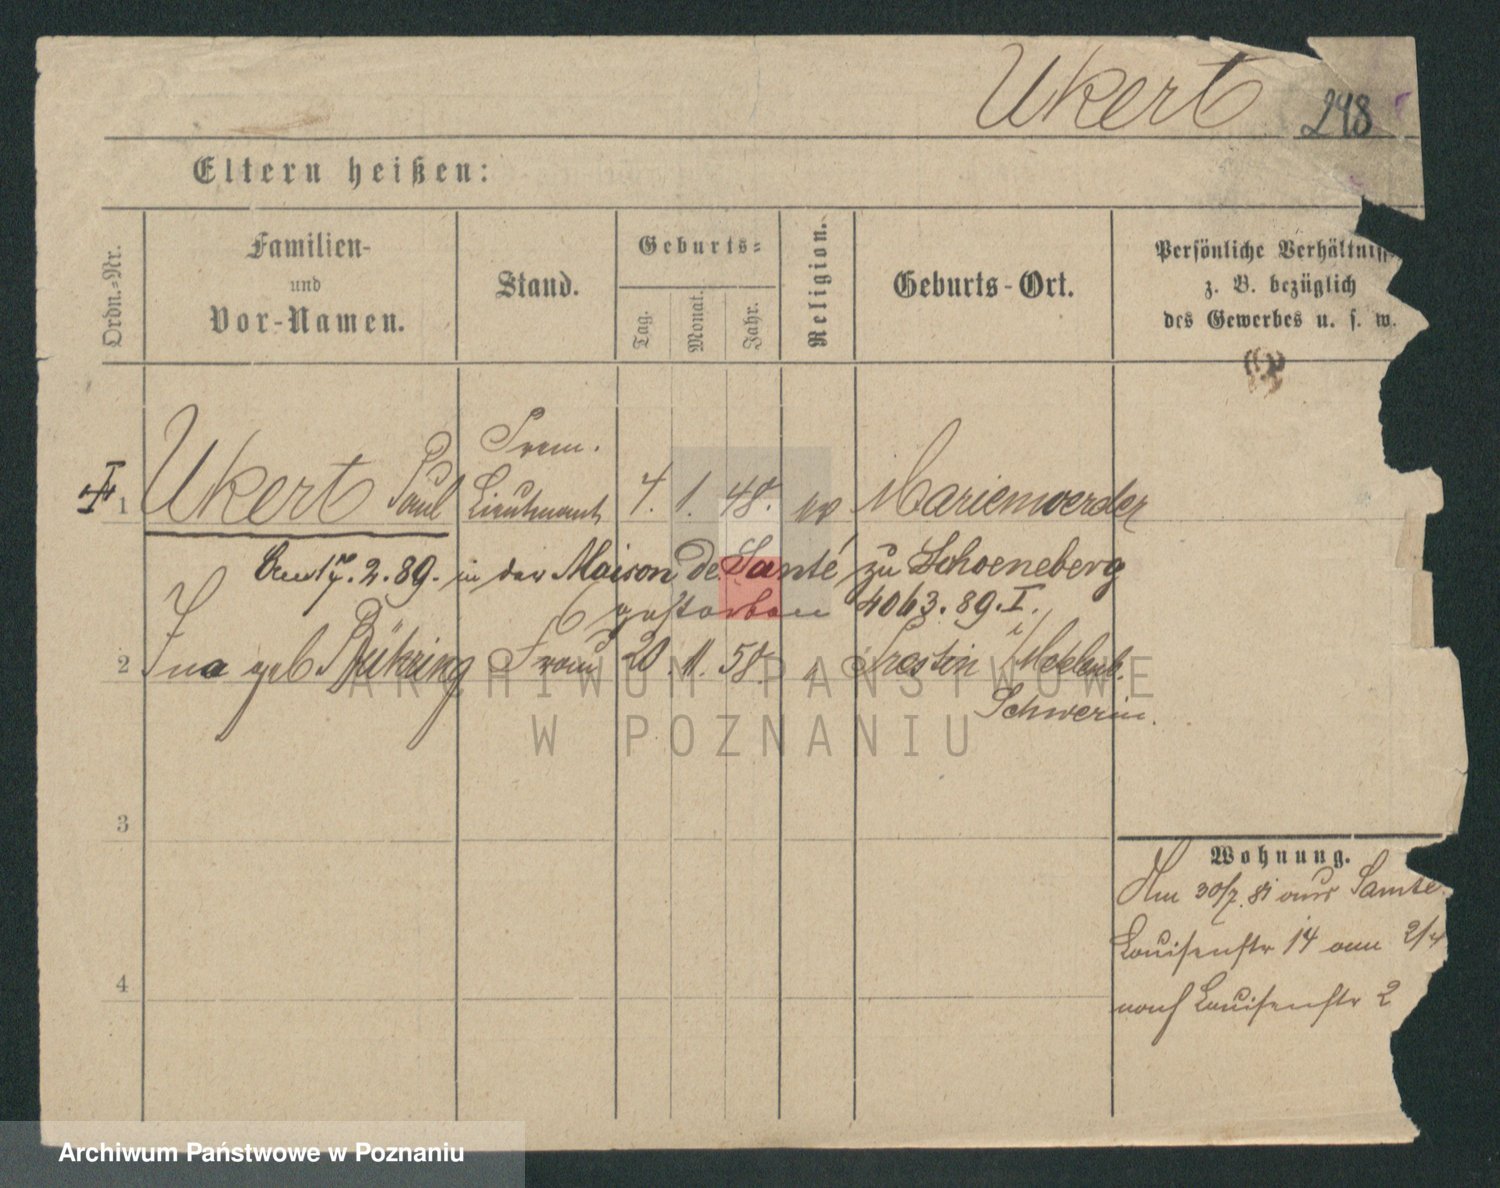 Ukert 248
Eltern heißen:
Ordn.-Nr.
Familien-
und
Vor-Namen.
Stand.
Geburts-
Tag.
Monat.
Jahr.
Religion.
Geburts-Ort.
Persönliche Verhältniss
z. B. bezüglich
des Gewerbes u. s. w.
Prem.
1 Ukert Paul Lieutnant 4. 1. 48. ev Marienwerder
Am 17. 2. 89. in der Maison de Santé zu Schoeneberg
gestorben 4063. 89. I.
2 Ina geb Bühring Frau 20. 11. 58. " i/Mcklenb.
Schwerin.
3
4
Wohnung.
Am 30/7. 81 aus Samte
Louisenstr 14 am 2/4
nach Louisenstr 2
ARCHIWUM PAŃSTWOWE
W POZNANIU
Archiwum Państwowe w Poznaniu